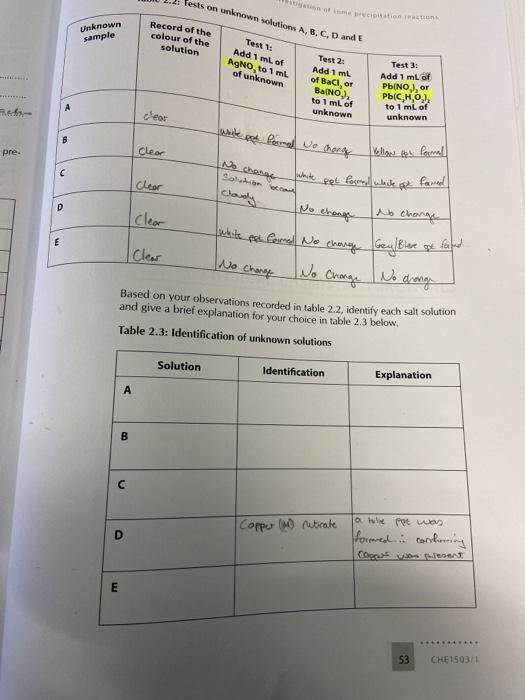 2.2: Tests on unknown solutions A, B, C, D and E
of some precipitation reactions
Unknown sample
Record of the colour of the solution
Test 1: Add 1 mL of AgNO3 to 1 mL of unknown
Test 2: Add 1 mL of BaCl2 or Ba(NO3)2 to 1 mL of unknown
Test 3: Add 1 mL of Pb(NO3)2 or Pb(C2H3O2)2 to 1 mL of unknown
A
clear
white ppt formed
No change
Yellow ppt formed
B
clear
No change
white ppt formed
white ppt formed
C
clear
Solution became cloudy
No change
No change
D
Clear
white ppt formed
No change
Grey/Blue ppt formed
E
Clear
No change
No Change
No change
pre-
Based on your observations recorded in table 2.2, identify each salt solution
and give a brief explanation for your choice in table 2.3 below.
Table 2.3: Identification of unknown solutions
Solution
Identification
Explanation
A
B
C
D
Copper nitrate
a ppt was
formed ∴ confirming
was present
E
53
CHE1503/1